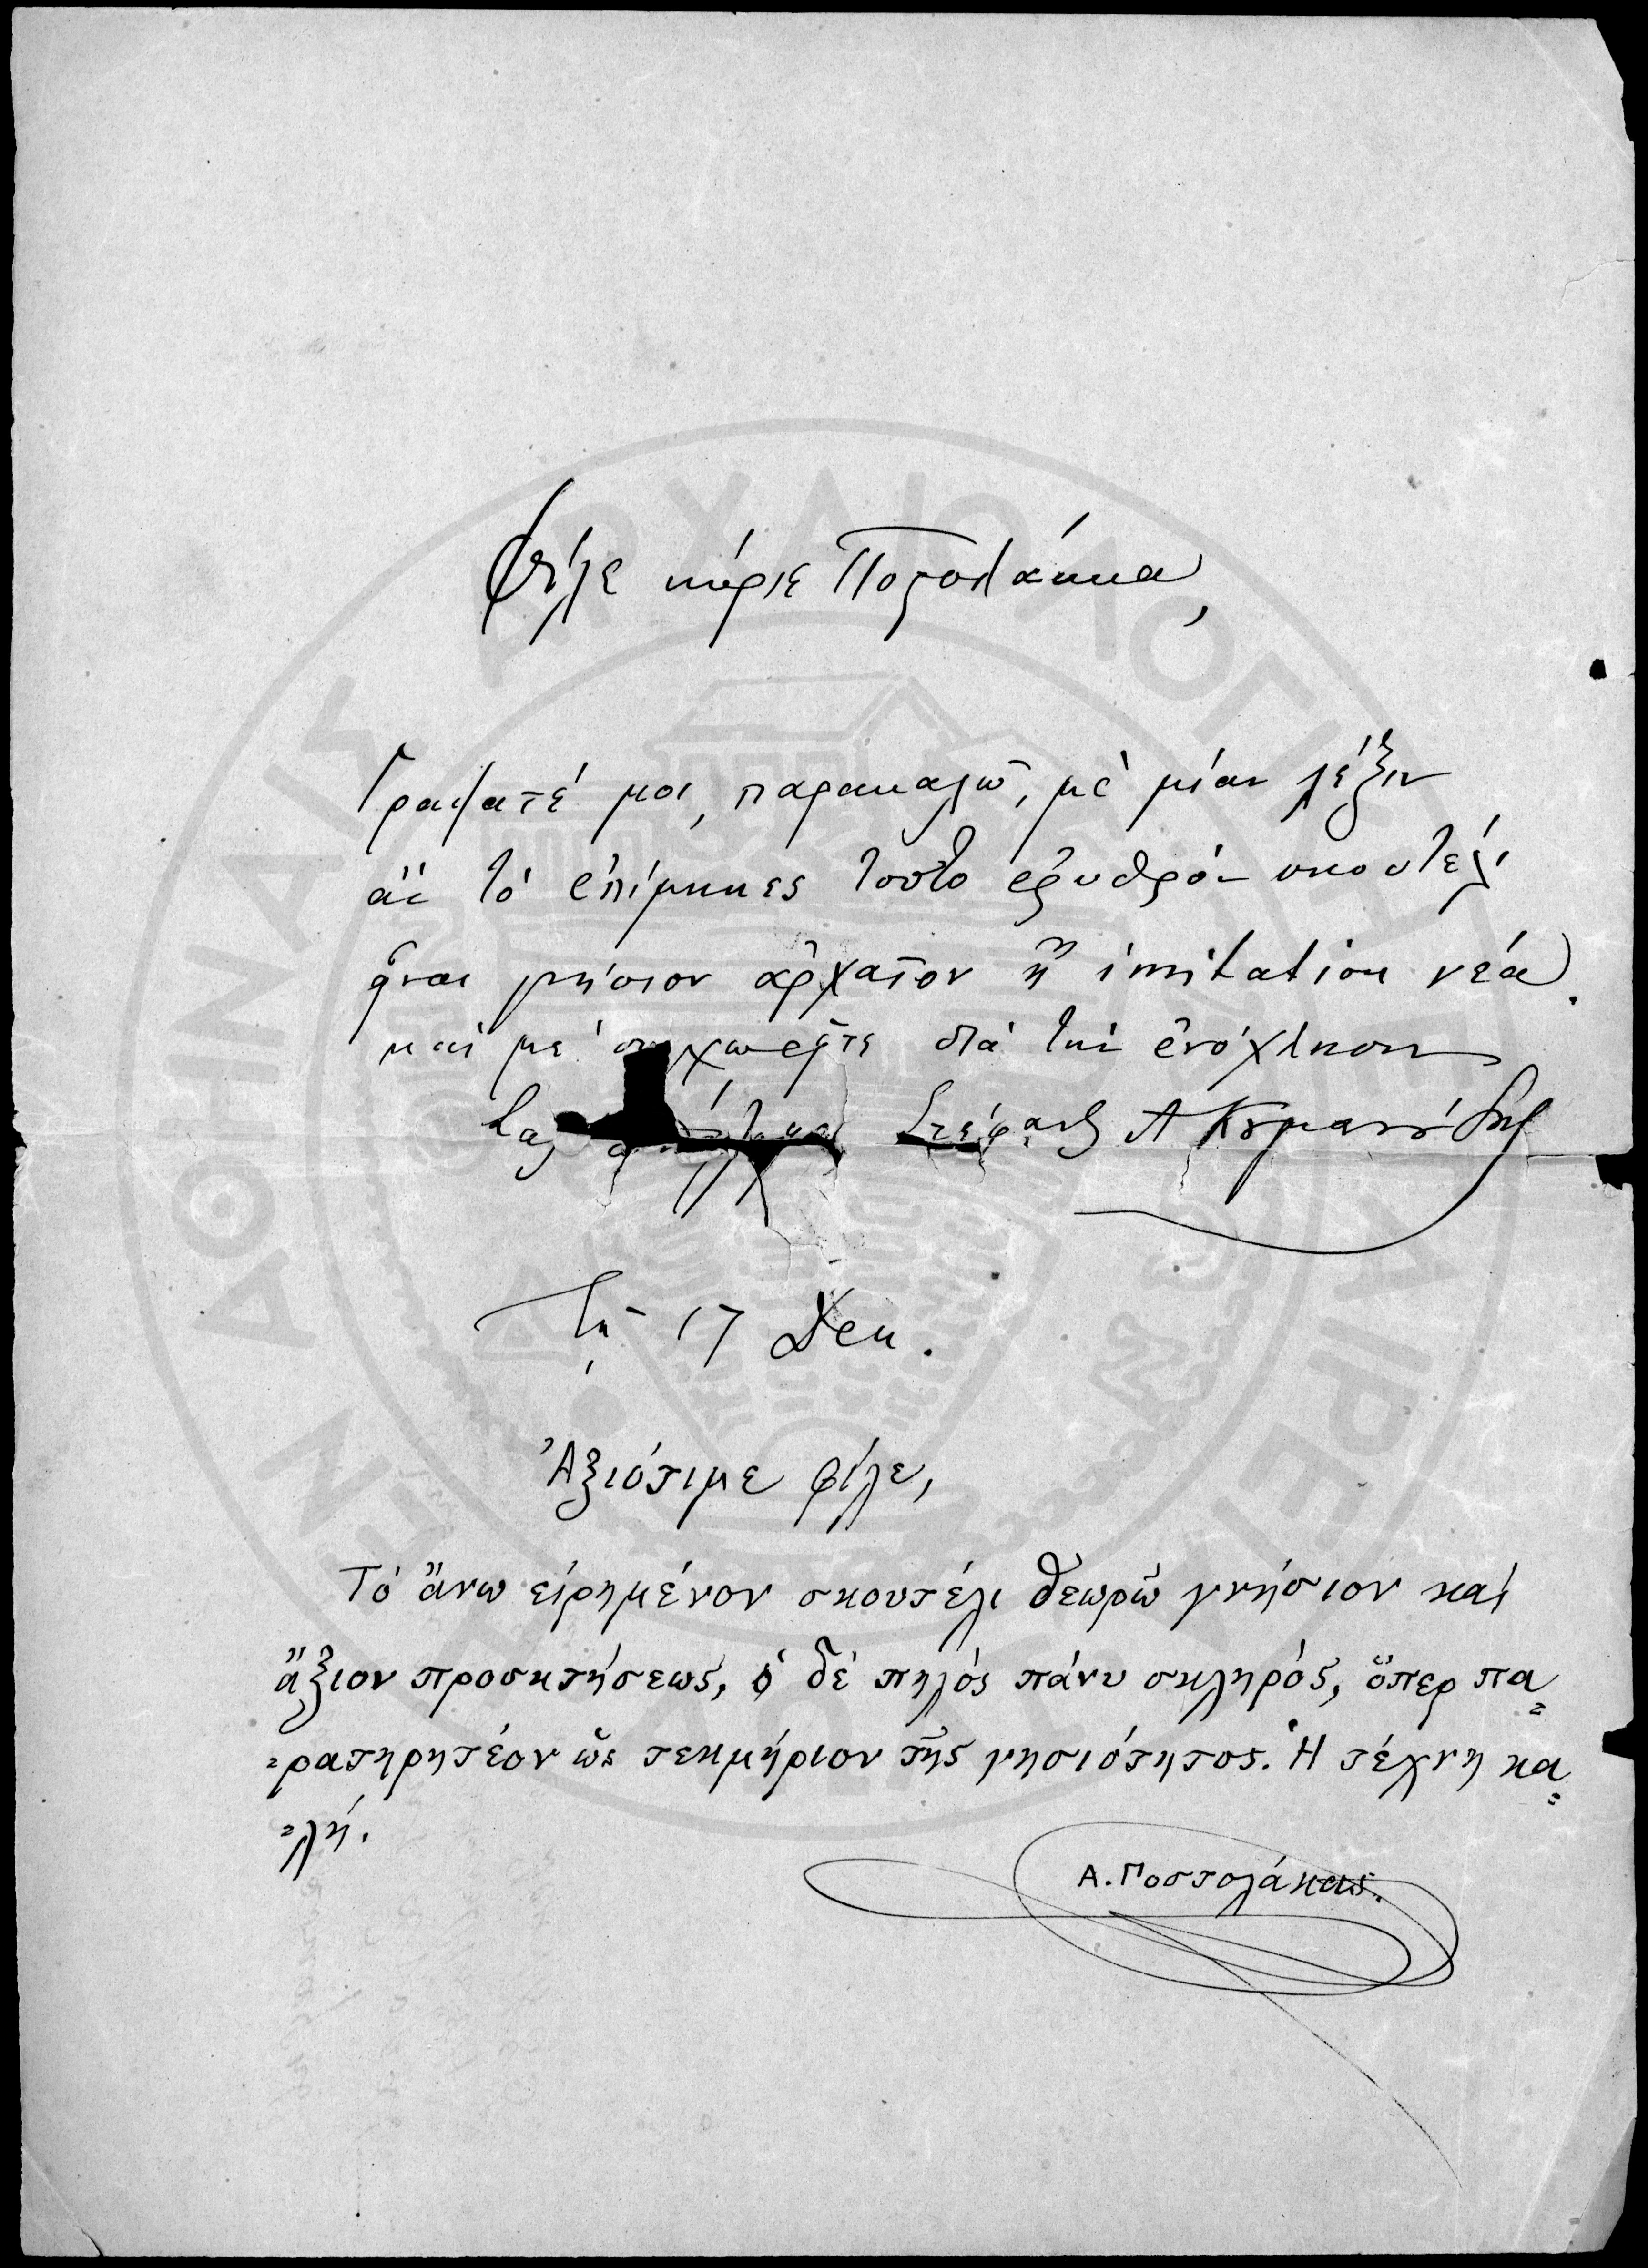 Φίλε κύριε Ποστολάκκα,
Γράψατέ μοι, παρακαλῶ, μὲ μίαν λέξιν
ἂν τὸ ἐπίμηκες τοῦτο ἐρυθρὸν σκουτέλι
ἦναι γνήσιον ἀρχαῖον ἢ imitation νέα.
καὶ μὲ συγχωρεῖτε διὰ τὴν ἐνόχλησιν
Σας Στέφανος Α Κουμανούδης
Τῇ 17 Δεκ.
Ἀξιότιμε φίλε,
Τὸ ἄνω εἰρημένον σκουτέλι θεωρῶ γνήσιον καὶ
ἄξιον προσκτήσεως, ὁ δὲ πηλὸς πάνυ σκληρός, ὅπερ πα=
=ρατηρητέον ὡς τεκμήριον τῆς γνησιότητος. Ἡ τέχνη κα=
=λή.
Α. Ποστολάκας.
ΑΡΧΑΙΟΛΟΓΙΚΗ ΕΤΑΙΡΕΙΑ
ΕΝ ΑΘΗΝΑΙΣ